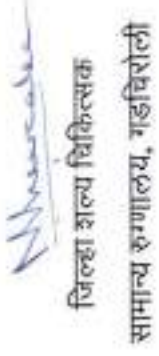 जिल्हा शल्य चिकित्सक
सामान्य रुग्णालय, गडचिरोली